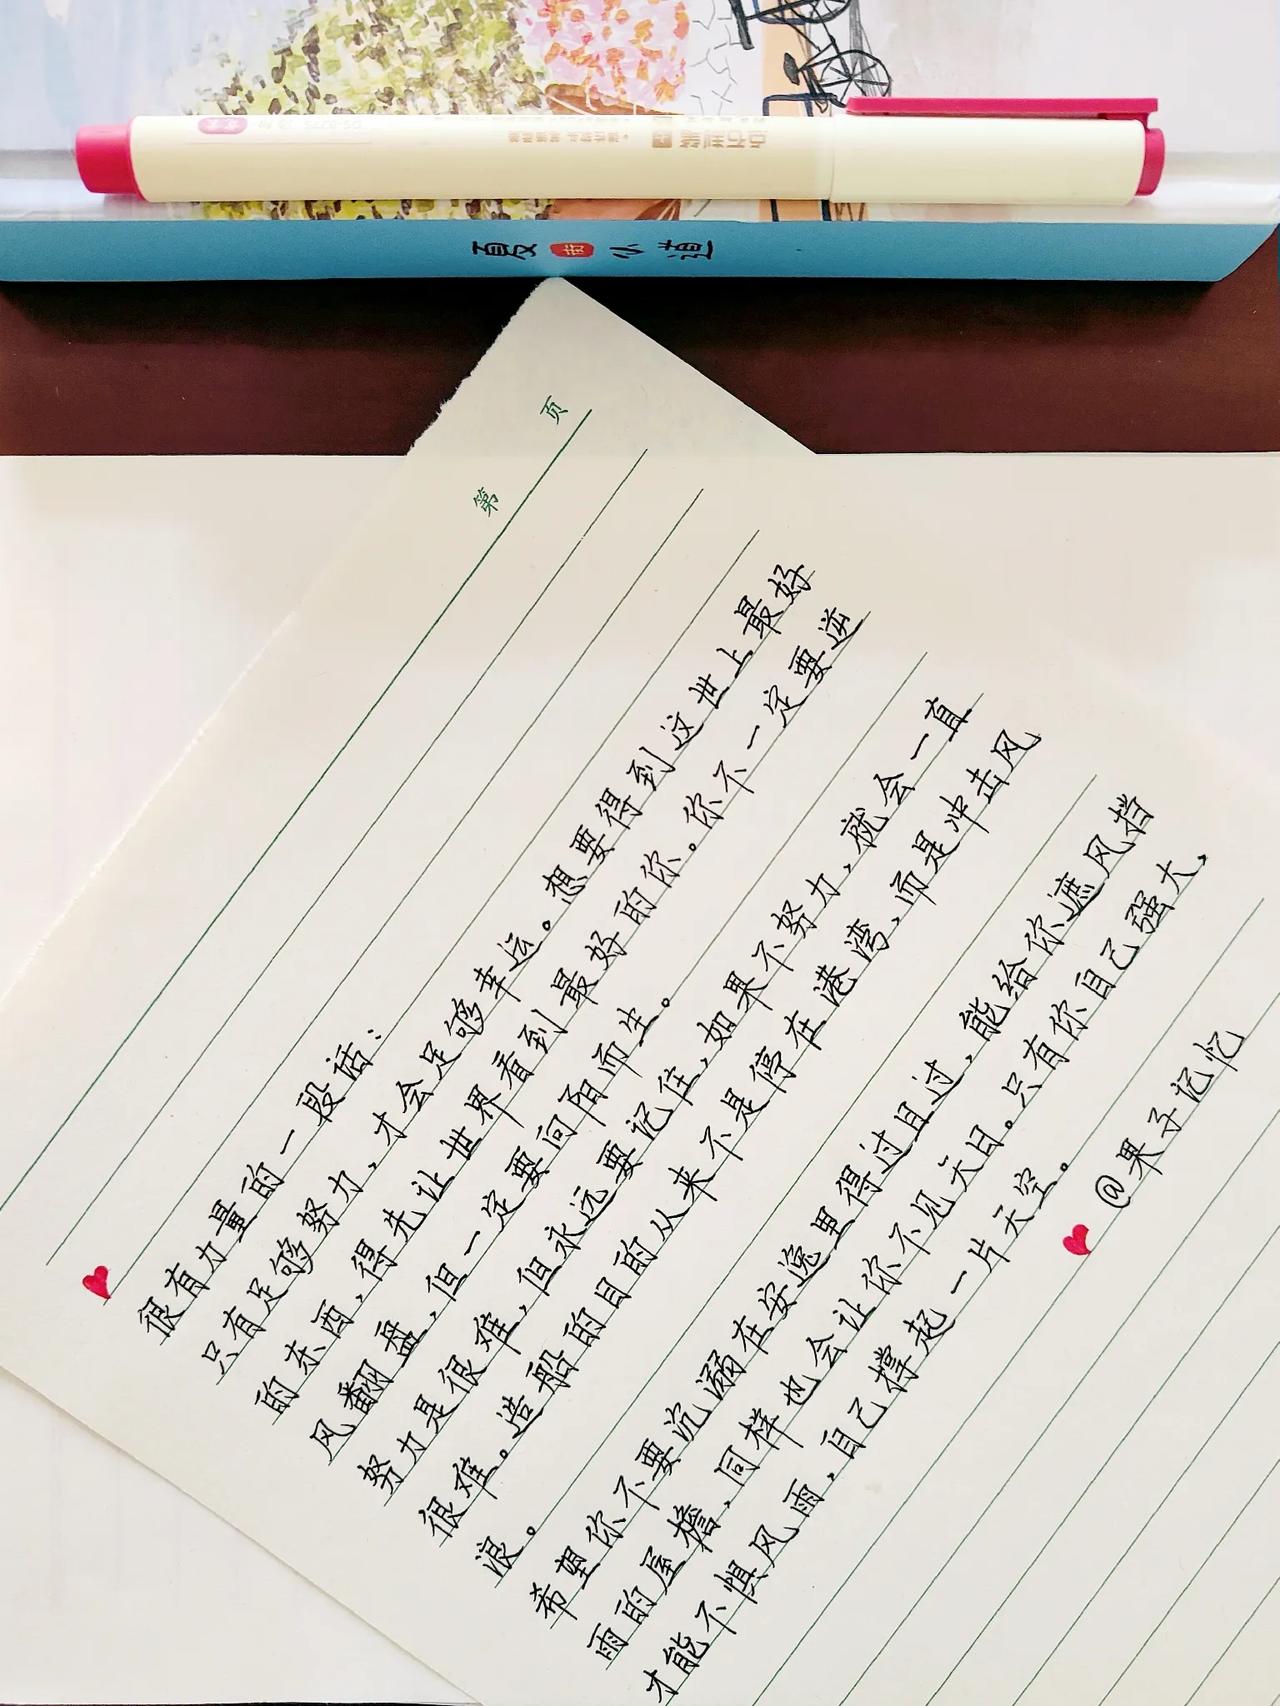 夏 知道
第 页
很有力量的一段话：
只有足够努力，才会足够幸运。想要得到这世上最好
的东西，得先让世界看到最好的你。你不一定要逆
风翻盘，但一定要向阳而生。
努力是很难，但永远要记住，如果不努力，就会一直
很难。造船的目的从来不是停在港湾，而是冲击风
浪。
希望你不要沉溺在安逸里得过且过，能给你遮风挡
雨的屋檐，同样也会让你不见天日。只有你自己强大，
才能不惧风雨，自己撑起一片天空。
@果子记忆